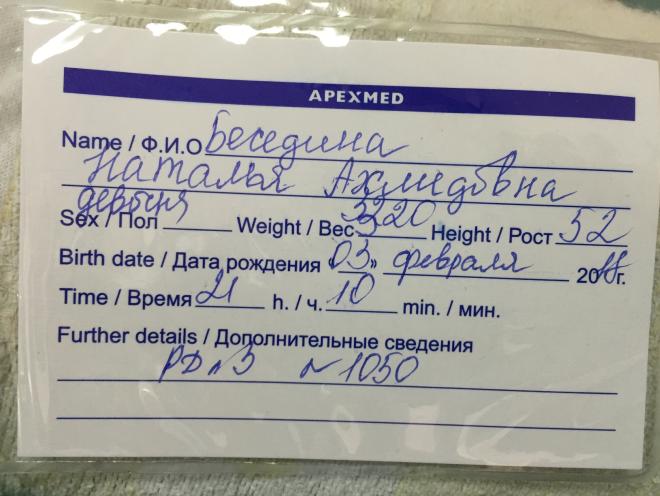 APEXMED
Name / Ф.И.О Беседина
Наталья Ахмедовна
девочка
Sex / Пол Weight / Вес 3320 Height / Рост 52
Birth date / Дата рождения 03» февраля 2018г.
Time / Время 21 h. / ч. 10 min. / мин.
Further details / Дополнительные сведения
РД №3 №1050